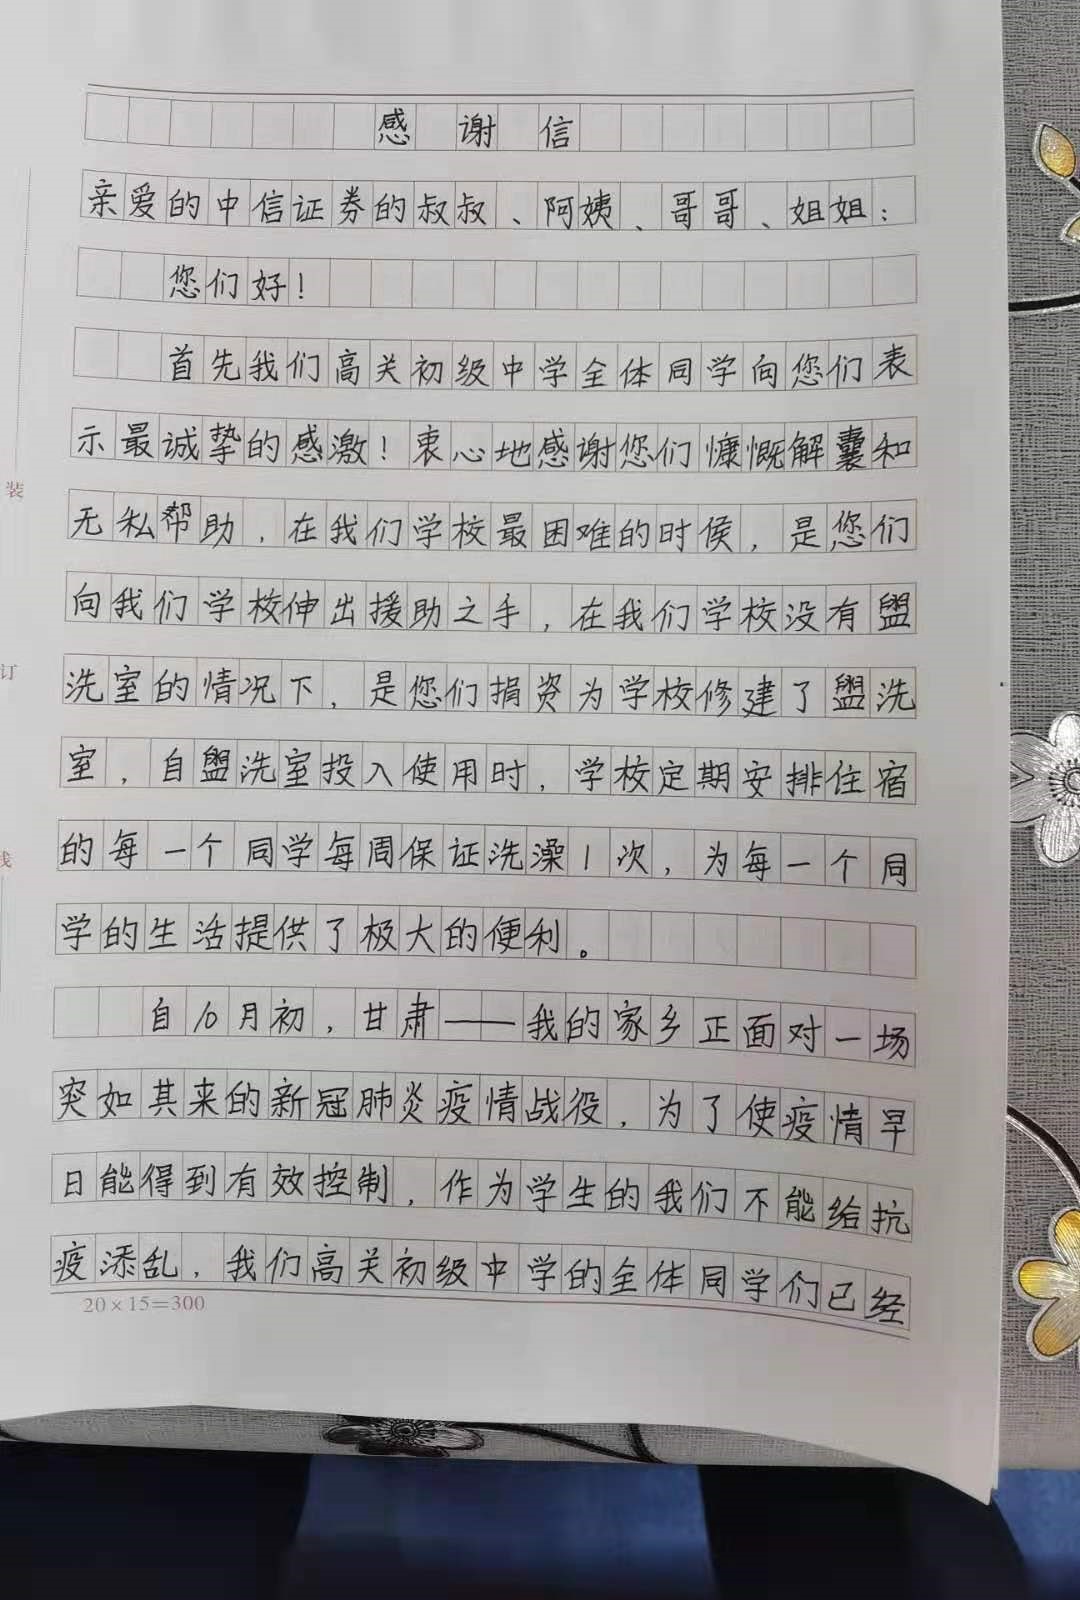 感谢信
亲爱的中信证券的叔叔、阿姨、哥哥、姐姐：
您们好！
首先我们高关初级中学全体同学向您们表
示最诚挚的感激！衷心地感谢您们慷慨解囊和
无私帮助，在我们学校最困难的时候，是您们
向我们学校伸出援助之手，在我们学校没有盥
洗室的情况下，是您们捐资为学校修建了盥洗
室，自盥洗室投入使用时，学校定期安排住宿
的每一个同学每周保证洗澡1次，为每一个同
学的生活提供了极大的便利。
自10月初，甘肃——我的家乡正面对一场
突如其来的新冠肺炎疫情战役，为了使疫情早
日能得到有效控制，作为学生的我们不能给抗
疫添乱，我们高关初级中学的全体同学们已经
20×15=300
装
订
线